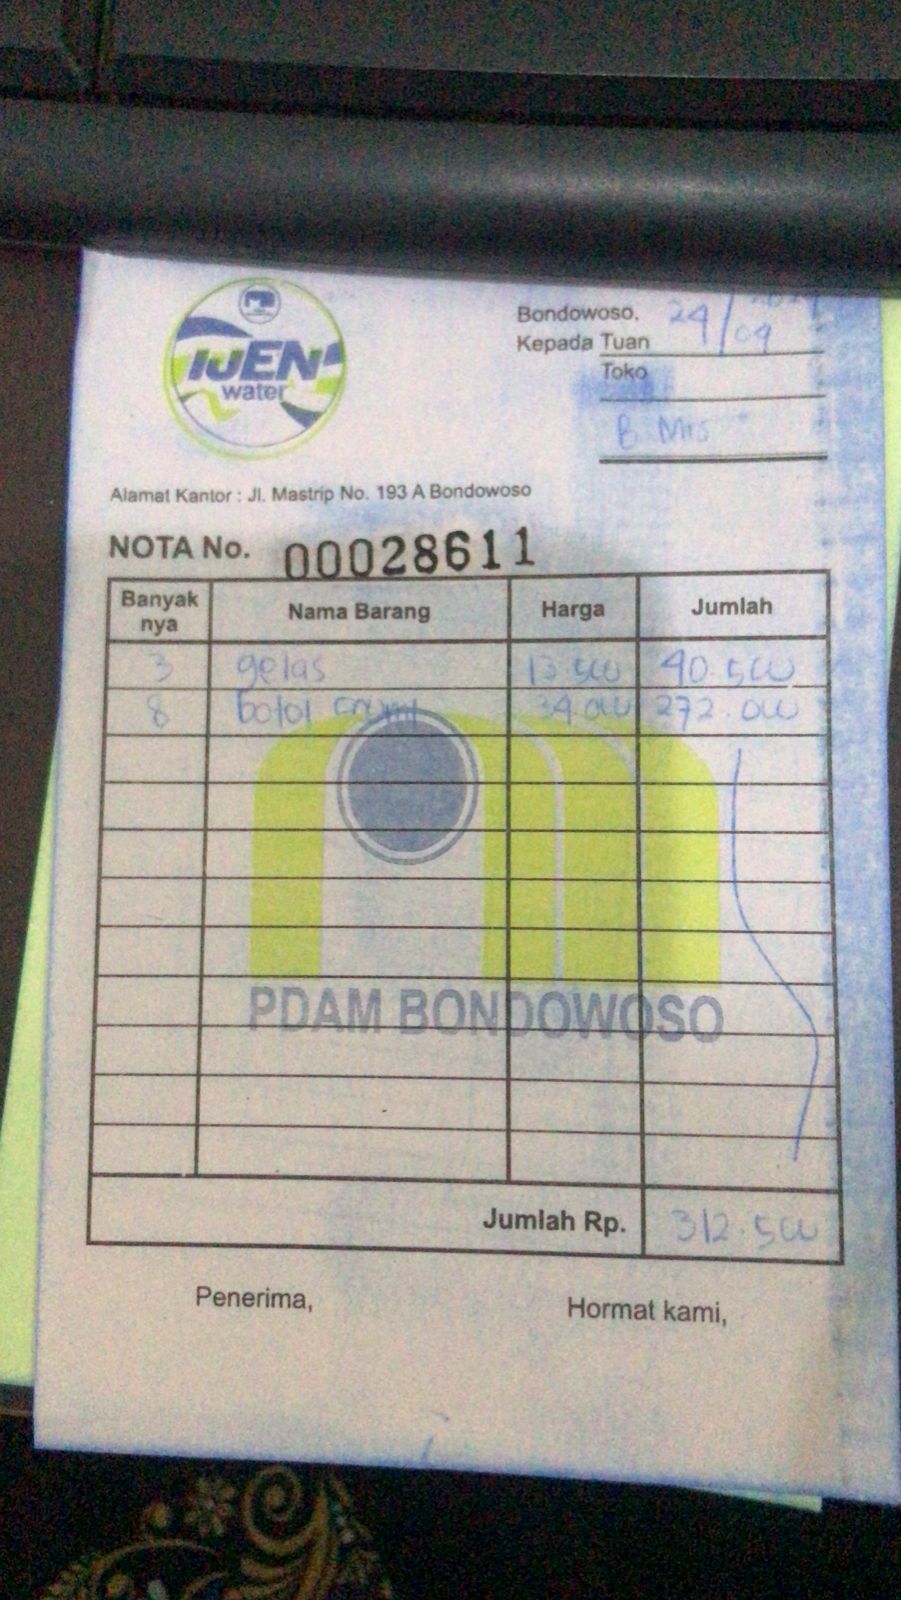 IJEN
water
Bondowoso, 24/09
Kepada Tuan
Toko
B. Mis
Alamat Kantor : Jl. Mastrip No. 193 A Bondowoso
NOTA No. 00028611
Banyak nya Nama Barang Harga Jumlah
3 gelas 13.500 40.500
8 botol 34.000 272.000
PDAM BONDOWOSO
Jumlah Rp. 312.500
Penerima, Hormat kami,